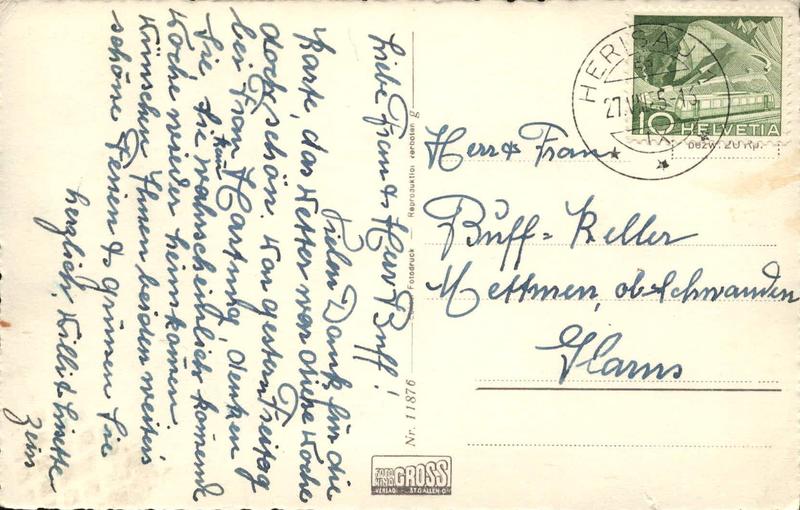 Liebe Frau & Herr Buff!
Vielen Dank für die
Karte, das Wetter war diese Woche
doch schön. War gestern Freitag
bei Frau Hartung, denken
Sie, Sie wahrscheinlich kommende
Woche wieder heimkommen.
Wünschen Ihnen beiden weiters
schöne Ferien & grüssen Sie
herzlich, Willi & Lisette
Zeiss
HERISAU 1
27.VIII.
10 HELVETIA
bezw. 20 Rp.
Herr & Frau
Buff-Keller
Mettmen, ob Schwanden
Glarus
Fotodruck — Reproduktion verboten
Nr. 11876
FOTO UND GROSS
VERLAG ST. GALLEN